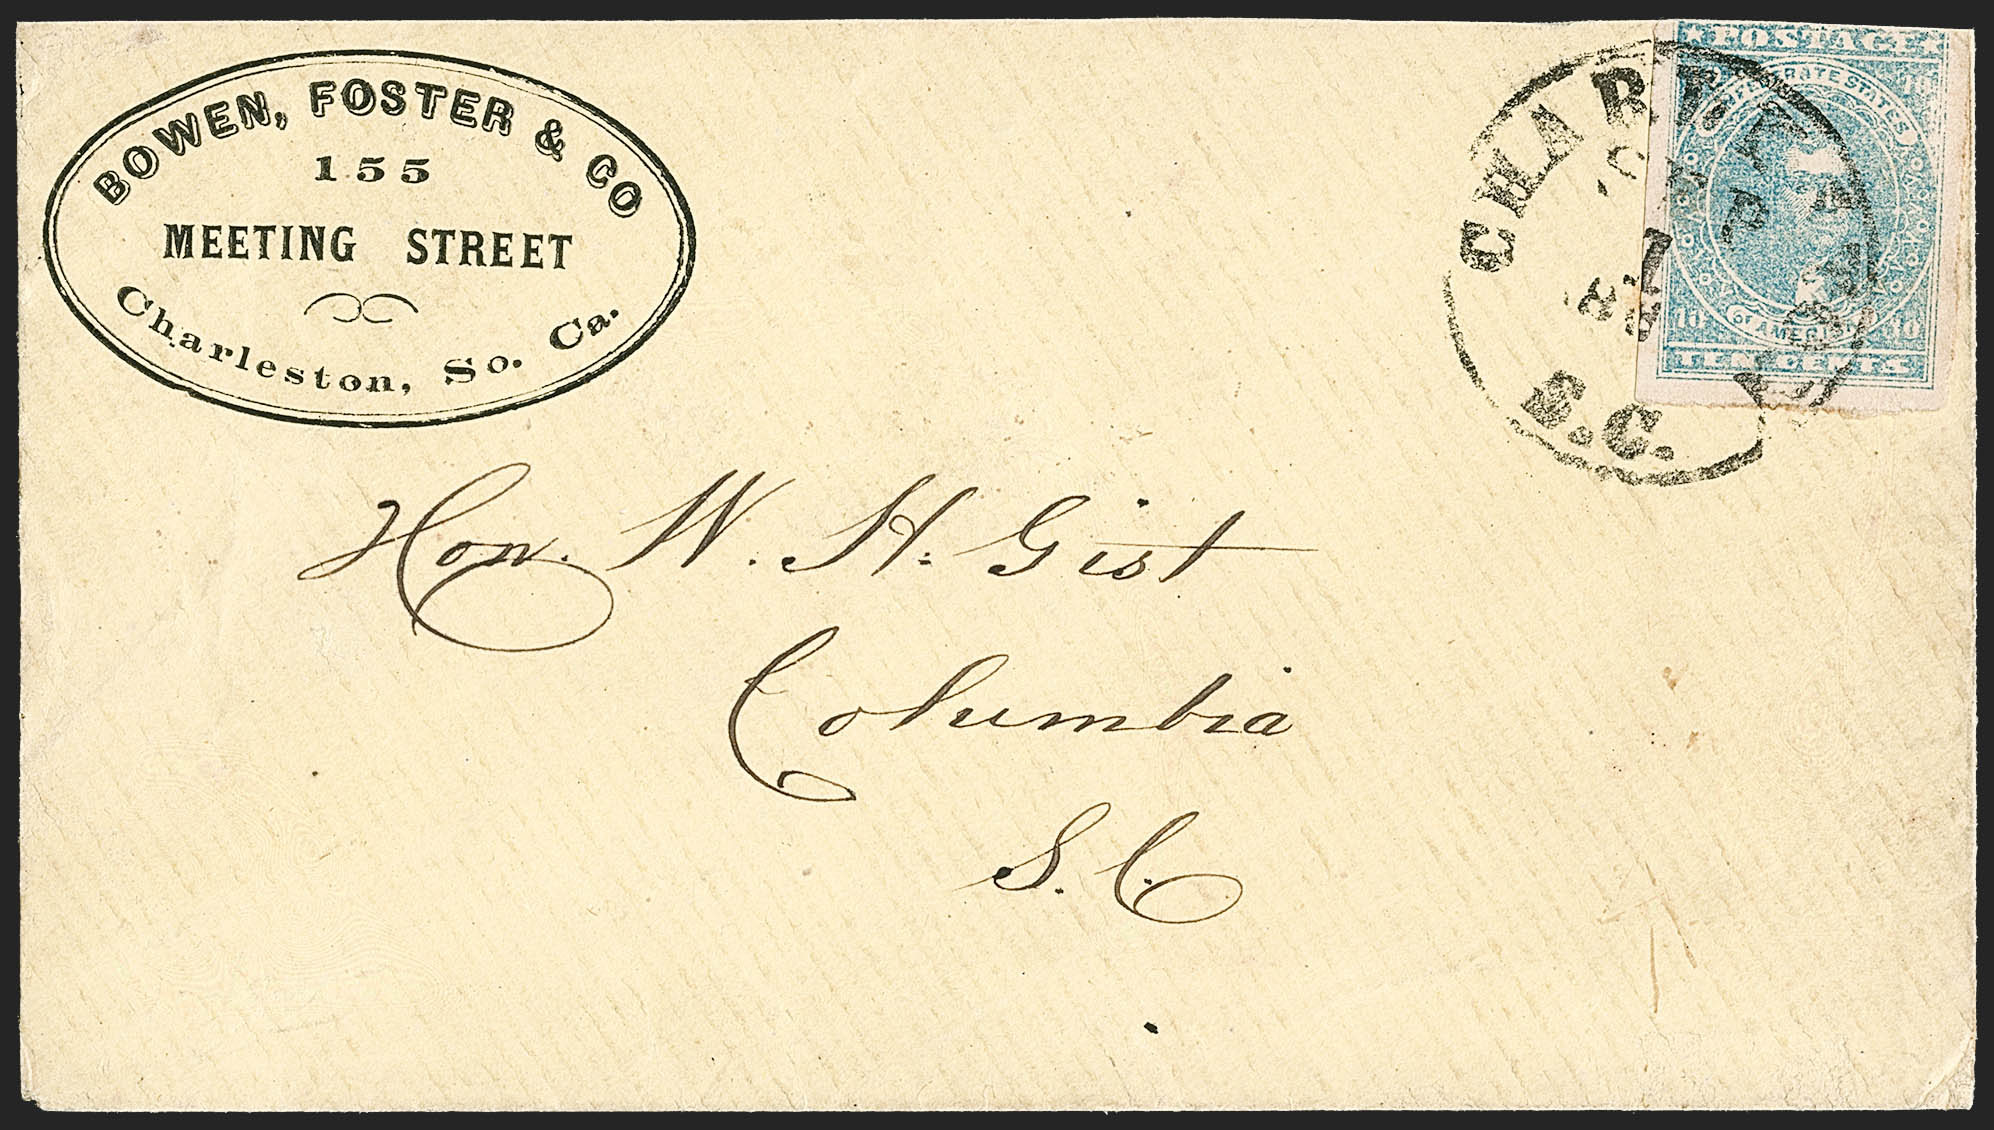 BOWEN, FOSTER & CO
155
MEETING STREET
Charleston, So. Ca.
POSTAGE
10 10
CONFEDERATE STATES
OF AMERICA
10 10
TEN CENTS
CHARLESTON
SEP
S.C.
Hon. W. H. Gist
Columbia
S. C.